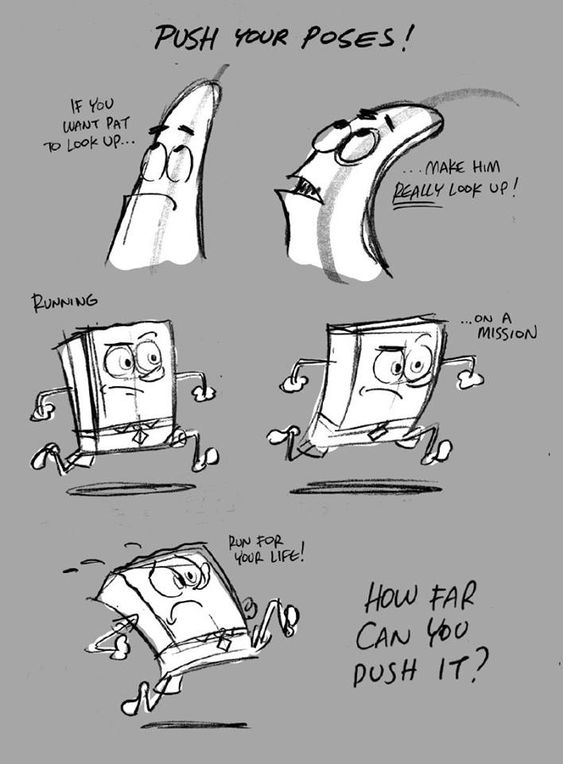 PUSH YOUR POSES!
IF YOU
WANT PAT
TO LOOK UP...
...MAKE HIM
REALLY LOOK UP!
RUNNING
...ON A
MISSION
RUN FOR
YOUR LIFE!
HOW FAR
CAN YOU
PUSH IT?